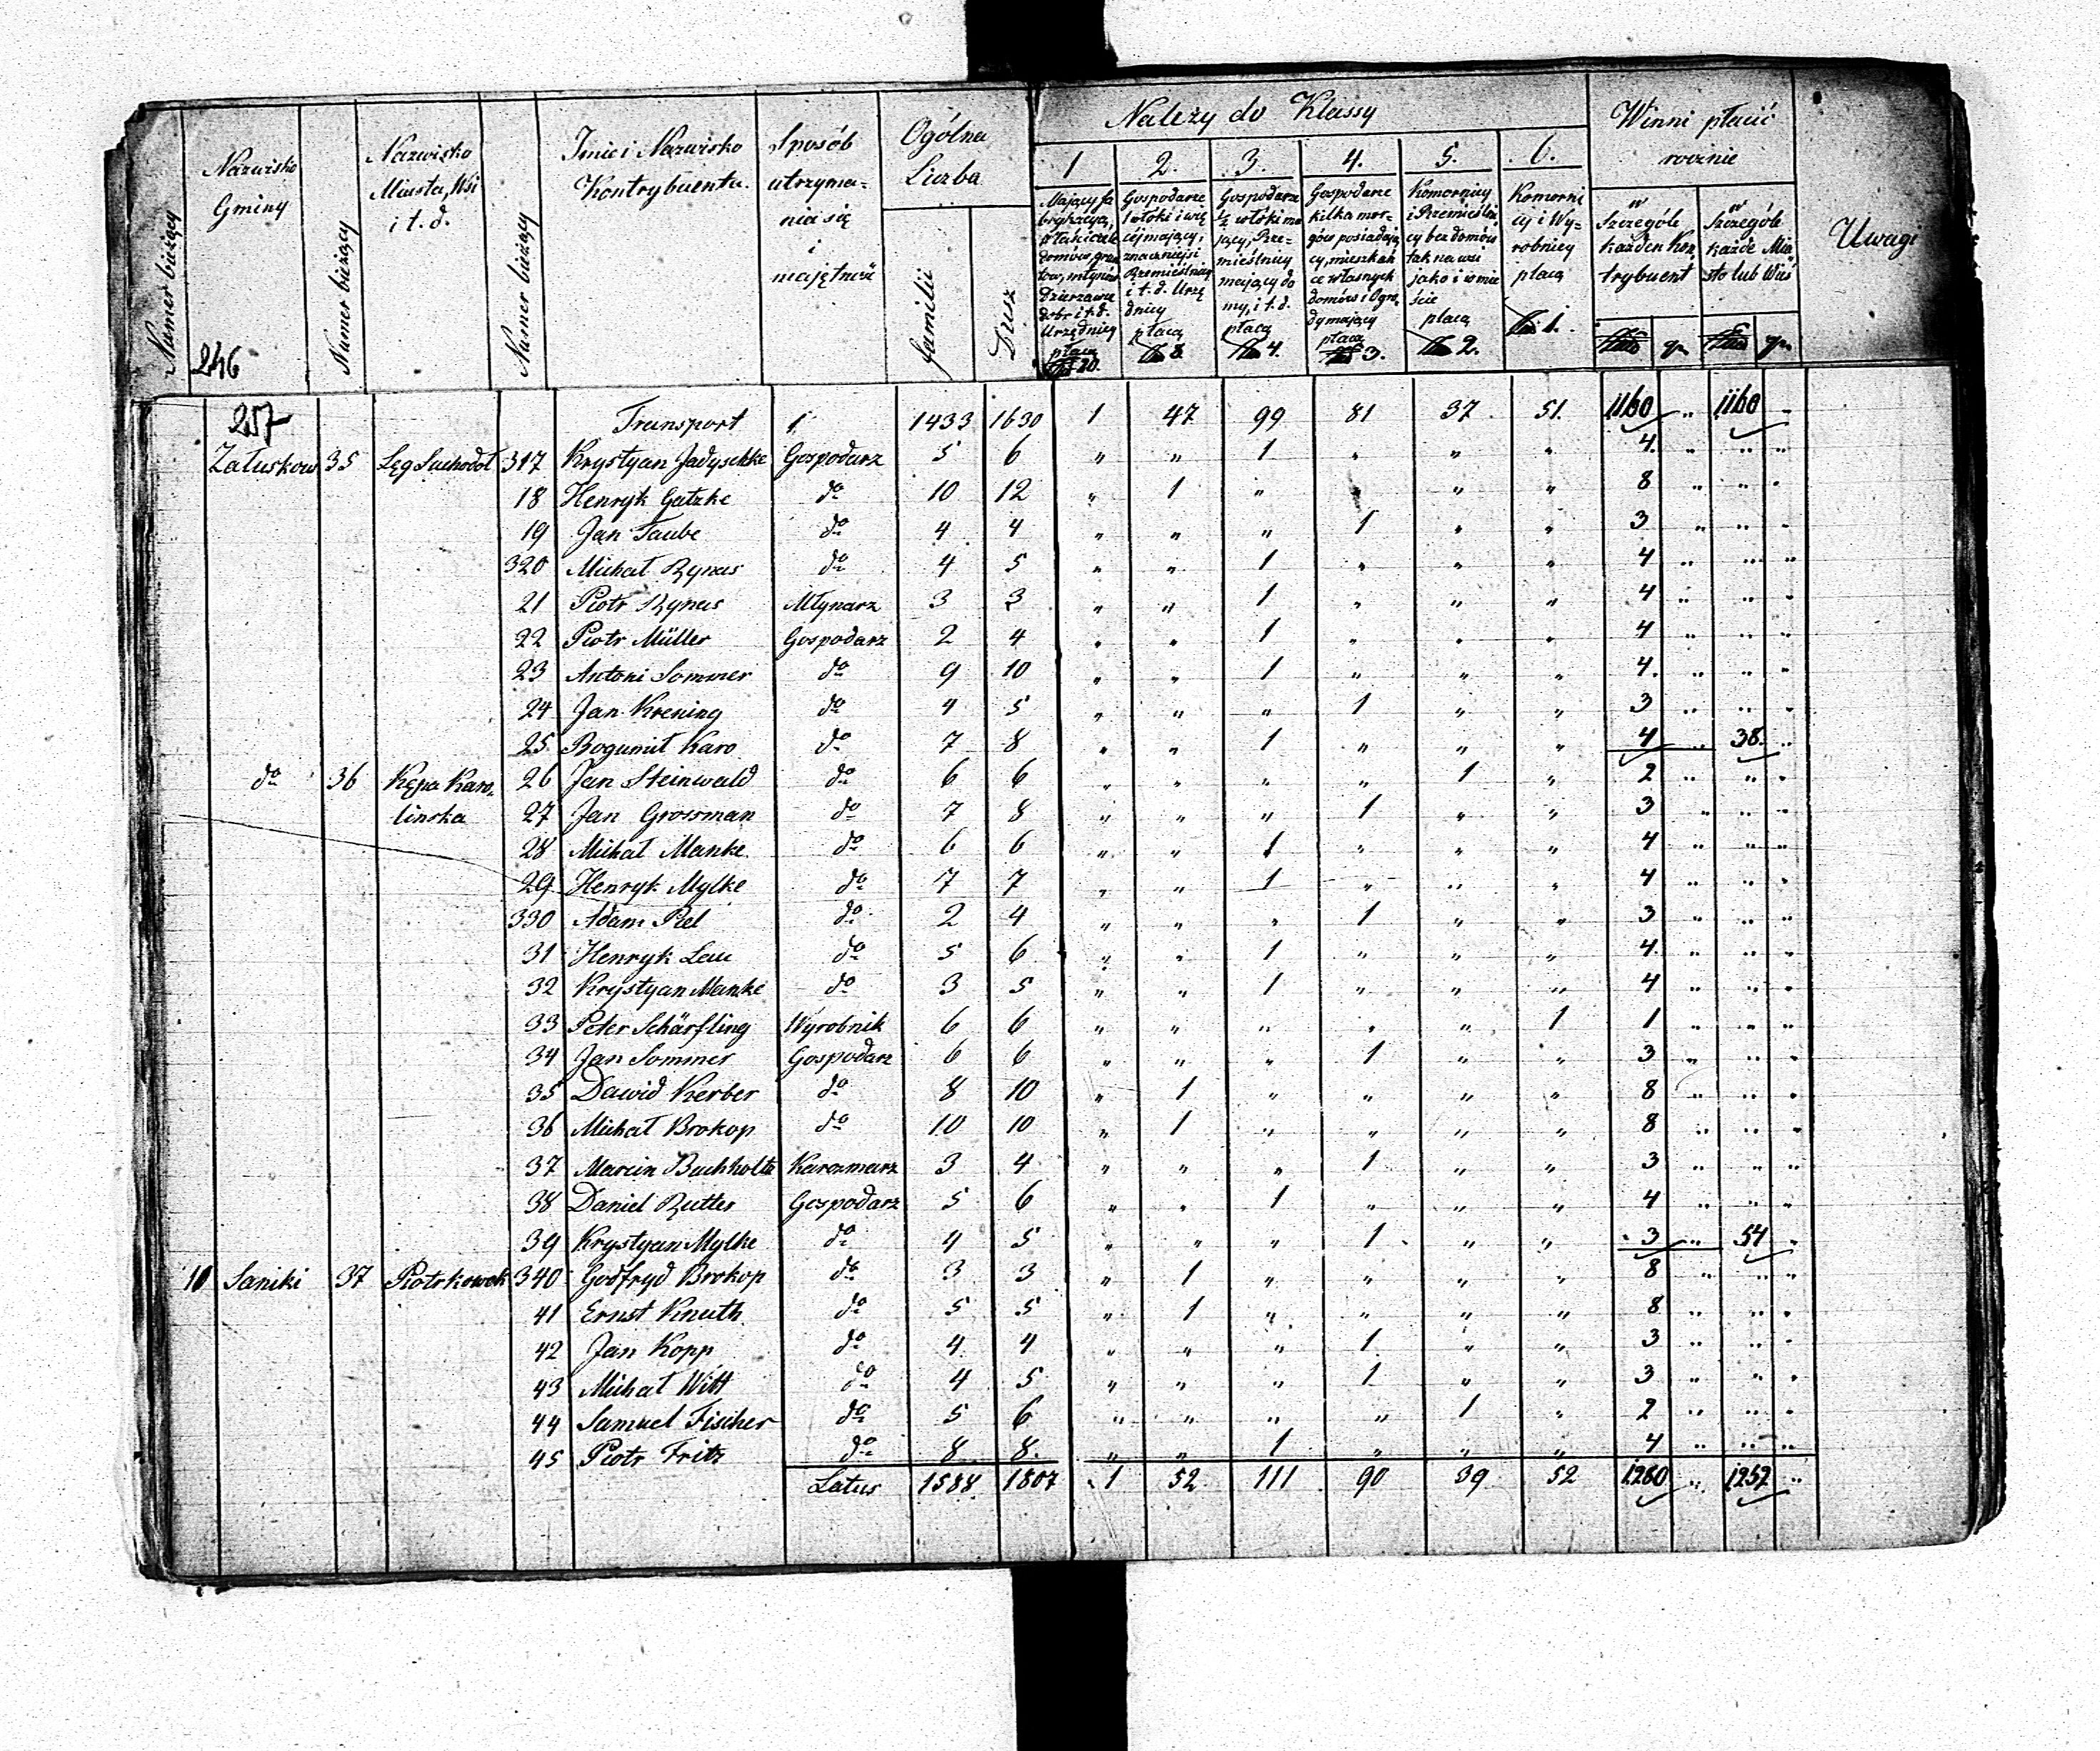 Numer bieżący
Nazwisko Gminy
246
Numer bieżący
Nazwisko Miasta, Wsi i t. d.
Numer bieżący
Imie i Nazwisko Kontrybuenta.
Sposób utrzymania się i majętność
Ogólna Liczba
Familii
Dusz
Należy do Klassy
1
Mający fabryki, właściciele domów, młynów Dzierżawcy dobr i t. d. Urzędnicy płacą 20.
2.
Gospodarze 1 włoki i więcej mający, znaczniejsi Rzemieślnicy i t. d. Urzędnicy płacą 8.
3.
Gospodarze ½ włóki mający, Rzemieślnicy mający domy, i t. d. płacą 4.
4.
Gospodarze kilka morgów posiadający, mieszkań ce własnych domów i Ogrody mający płacą 3.
5.
Komornicy i Rzemieślnicy bez domów tak na wsi jako i w mieście płacą 2.
6.
Komornicy i Wyrobnicy płacą 1.
Winni płacić rocznie
w Szczególe każden Kontrybuent
w Szczególe każde Miasto lub Wieś
gr.
gr.
Uwagi
257 Transport 1 1433 1630 1 47 99 81 37 51. 1160 " 1160 "
Załuskow 35 Łęg Suchodoł 317 Krystyan Jadyschke Gospodarz 5 6 " " 1 " " " 4. " " "
18 Henryk Gatzke do 10 12 " 1 " " " " 8 " " "
19 Jan Taube do 4 4 " " " 1 " " 3 " " "
320 Michał Rynas do 4 5 " " 1 " " " 4 " " "
21 Piotr Rynas Młynarz 3 3 " " 1 " " " 4 " " "
22 Piotr Müller Gospodarz 2 4 " " 1 " " " 4 " " "
23 Antoni Sommer do 9 10 " " 1 " " " 4. " " "
24 Jan Krening do 4 5 " " " 1 " " 3 " " "
25 Bogumił Karo do 7 8 " " 1 " " " 4 " 38 "
do 36 Kępa Karo- 26 Jan Steinwald do 6 6 " " " " 1 " 2 " " "
linska 27 Jan Grossman do 7 8 " " " 1 " " 3 " " "
28 Michał Manke do 6 6 " " 1 " " " 4 " " "
29 Henryk Mylke do 7 7 " " 1 " " " 4 " " "
330 Adam Pel do 2 4 " " " 1 " " 3 " " "
31 Henryk Lau do 5 6 " " 1 " " " 4. " " "
32 Krystyan Manke do 3 5 " " 1 " " " 4 " " "
33 Peter Schärfling Wyrobnik 6 6 " " " " " 1 1 " " "
34 Jan Sommer Gospodarz 6 6 " " " 1 " " 3 " " "
35 Dawid Kerber do 8 10 " 1 " " " " 8 " " "
36 Michał Brokop do 10 10 " 1 " " " " 8 " " "
37 Marcin Buchholtz Karczmarz 3 4 " " " 1 " " 3 " " "
38 Daniel Rutter Gospodarz 5 6 " " 1 " " " 4 " " "
39 Krystyan Mylke do 4 5 " " " 1 " " 3 " 54 "
10 Saniki 37 Piotrkowek 340 Godfryd Brokop do 3 3 " 1 " " " " 8 " " "
41 Ernst Knuth do 5 5 " 1 " " " " 8 " " "
42 Jan Kopp do 4 4 " " " 1 " " 3 " " "
43 Michał Witt do 4 5 " " " 1 " " 3 " " "
44 Samuel Fischer do 5 6 " " " " 1 " 2 " " "
45 Piotr Fritz do 8 8. " " 1 " " " 4 " " "
Latus 1588 1807 1 52 111 90 39 52 1280 " 1252 "